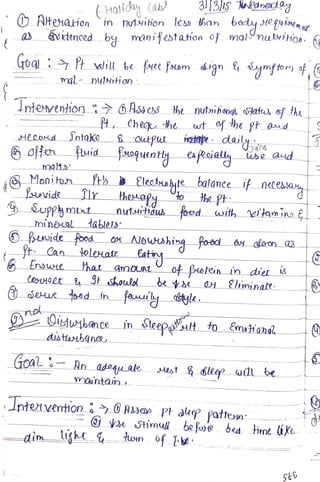 (Holiday (ab) 31/3/15 Wednesday
① Alteration in nutrition less than body requirement
as Evidenced by manifestation of mal nutrition.
Goal : → Pt will be free from sign & Symptom of
mal- nutrition.
Intervention : → ① Assess the nutritional status of the
Pt, cheqe the wt of the pt and
record Intake & output daily.
② Offer fluid frequently especially juice and
malts.
③ Monitor Pt's Electrolyte balance if necessary
Provide IV therapy to the pt.
④ Supplyment nutritious food with vitamin &
mineral tablets.
⑤ Provide food or Nourishing food as soon as
Pt. Can tolerate Eating
⑥ Ensure that amount of protein in diet is
correct & It should be ↓se or Eliminate.
⑦ Serve food in family style.
2nd Disturbance in Sleep pattern r/t to Emotional
disturbance.
Goal :- An adequate rest & sleep will be
maintain.
Intervention : → ① Assess pt sleep pattern.
② ↓se Stimuli before bed time like
dim light & turn of T.V.